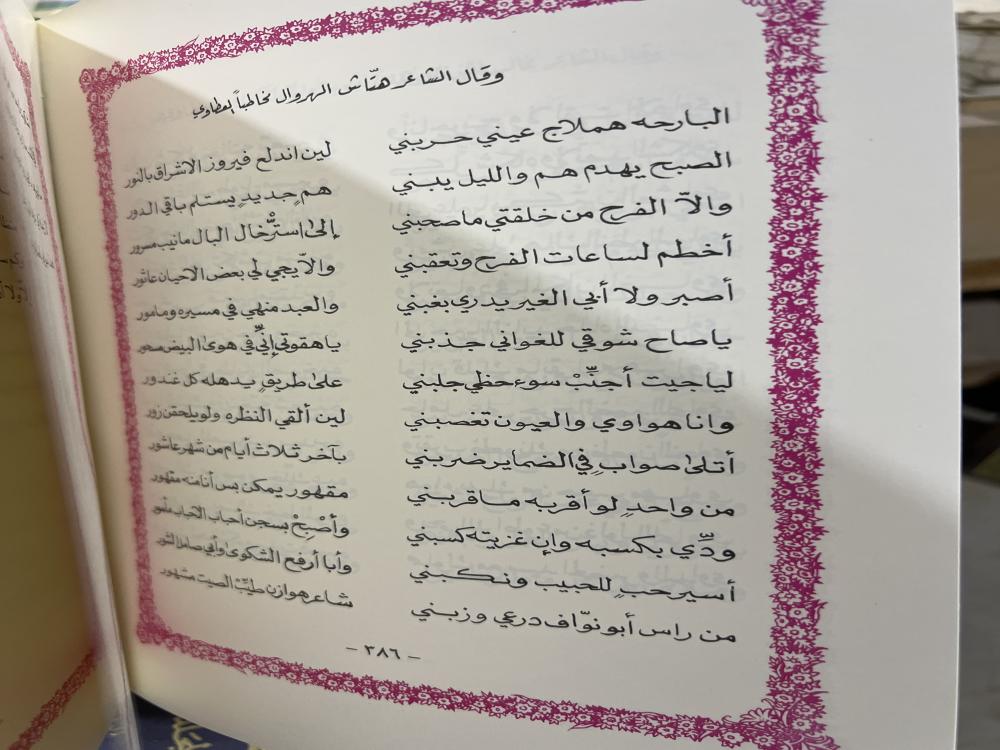 وقال الشاعر هتّاش الهروال مخاطباً العطاوي
البارحه هملاج عيني حربني لين اندلع فيروز الاشراق بالنور
الصبح يهدم هم والليل يبني هم جديدٍ يستلم باقي الدور
والاّ الفرح من خلقتي ماصحبني إلى استرْخال البال مانيب مسرور
أخطم لساعات الفرح وتعقبني والاّ يجي لي بعض الاحيان عاثور
أصبر ولا أبي الغير يدري بغبني والعبد منهي في مسيره ومامور
ياصاح شوقي للغواني جذبني ياهقوتي إنّي في هوى البيض مسحور
لياجيت أجنّبْ سوء حظي جلبني على طريقٍ يدهله كل غندور
وانا هواوي والعيون تغصبني لين ألقي النظره ولو يلحقن زور
أتلى صوابٍ في الضماير ضربني بآخر ثلاث أيام من شهر عاشور
من واحدٍ لو أقربه ماقربني مقهور يمكن بس أنا منه مقهور
ودّي بكسبه وإن غزيته كسبني وأصْبِحْ بسجن أحباب الاحباب
أسير حبٍ للحبيب ونكبني وأبا أرفع الشكوى وأبي
من راس أبو نوّاف درعي وزبني شاعر هوازن طيّبْ الصيت مشهور
- ٣٨٦ -